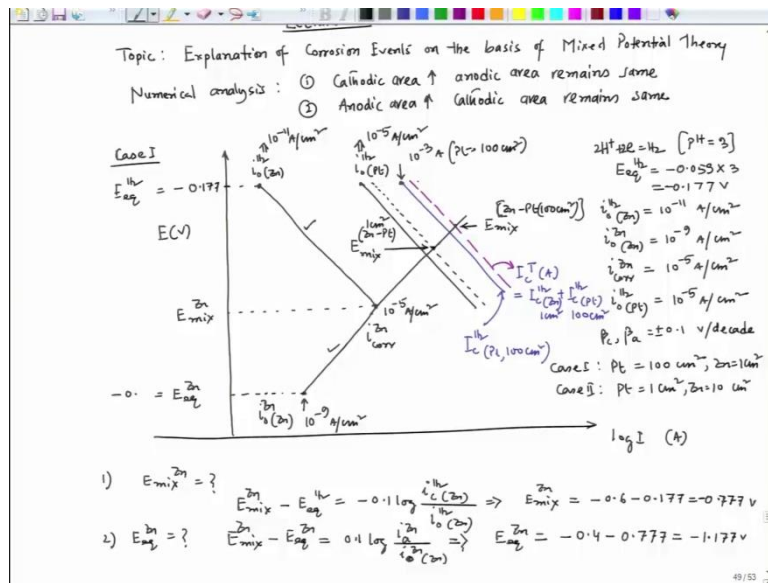 Topic: Explanation of Corrosion Events on the basis of Mixed Potential Theory
Numerical analysis: ① Cathodic area ↑ anodic area remains same
② Anodic area ↑ Cathodic area remains same
Case I
10^-11 A/cm²
i_o(Zn)^H2
10^-5 A/cm²
i_o(Pt)^H2
10^-3 A (Pt → 100 cm²)
E_eq^H2 = -0.177
E(V)
[Zn-Pt(100cm²)]
E_mix
1cm²
(Zn-Pt)
E_mix
I_c^T (A)
= I_c(Zn)^H2 + I_c(Pt)^H2
1cm² 100cm²
I_c^H2 (Pt, 100cm²)
E_mix^Zn
10^-5 A/cm²
i_corr^Zn
-0. = E_eq^Zn
i_o(Zn)^Zn
10^-9 A/cm²
log I (A)
2H⁺+2e=H₂ [pH=3]
E_eq^H2 = -0.059×3
= -0.177 V
i_o(Zn)^H2 = 10^-11 A/cm²
i_o(Zn)^Zn = 10^-9 A/cm²
i_corr^Zn = 10^-5 A/cm²
i_o(Pt)^H2 = 10^-5 A/cm²
β_c, β_a = ±0.1 V/decade
Case I: Pt = 100 cm², Zn=1cm²
Case II: Pt = 1 cm², Zn=10 cm²
1) E_mix^Zn = ?
E_mix^Zn - E_eq^H2 = -0.1 log i_c(Zn)^H2 / i_o(Zn)^H2 => E_mix^Zn = -0.6-0.177=-0.777 V
2) E_eq^Zn = ? E_mix^Zn - E_eq^Zn = 0.1 log i_a^Zn / i_o^Zn(Zn) => E_eq^Zn = -0.4-0.777 = -1.177 V
49/53